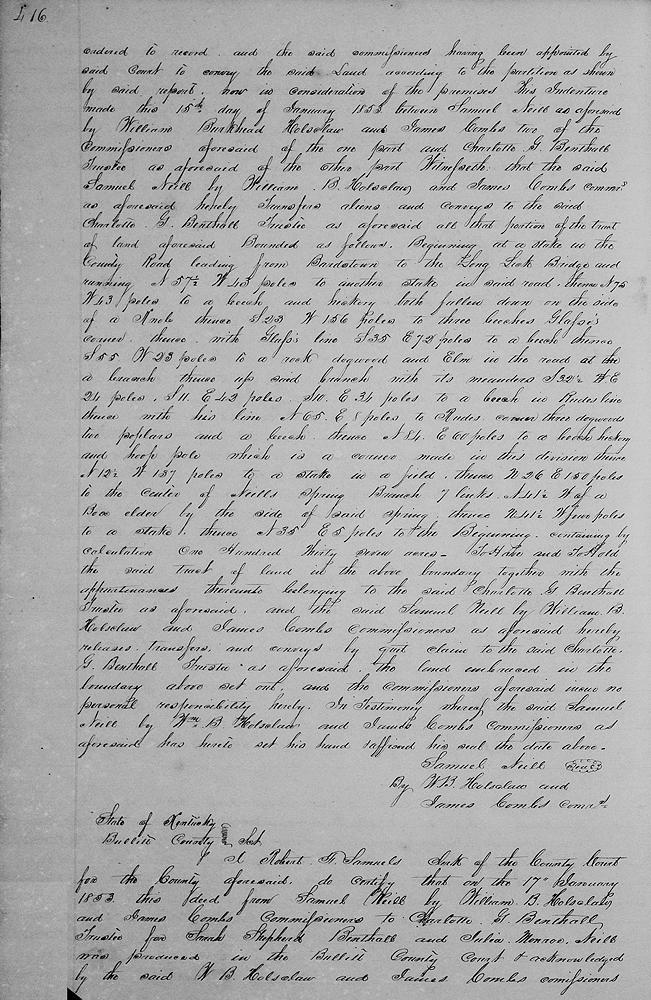 416
ordered to record. and the said commissioners having been appointed by
said Court to convey the said Land according to the partition as shown
by said report. now in consideration of the premises This Indenture
made this 15th day of January 1853 between Samuel Neill as aforesaid
by William Burkhead Holsclaw and James Combs two of the
Commissioners aforesaid of the one part and Charlotte. G. Benthall
Trustee as aforesaid of the other part Witnesseth that the said
Samuel Neill by William. B. Holsclaw and James Combs commrs
as aforesaid hereby Transfers aliens and Conveys to the said
Charlotte. G. Benthall Trustee as aforesaid all that portion of the tract
of land aforesaid Bounded as follows. Beginning at a stake in the
County Road leading from Bardstown to the Long Lick Bridge and
running N 57½ W 43 poles to another stake in said road. thence N 75
W 43 poles to a beech and hickory both fallen down on the side
of a Knob thence S 23 W 156 poles to three beeches Glass's
corner. thence with Glass's line S 35 E 72 poles to a beech thence
S 55 W 23 poles to a rock dogwood and Elm in the road at the
a branch thence up said branch with its meanders S 32½ W E
21 poles. S 11. E 42 poles. S 10. E 34 poles to a beech in Rudes line
thence with his line N 65. E 8 poles to Rudes. corner three dogwoods
two poplars and a beech. thence N 84. E 60 poles to a beech hickory
and hoop pole which is a corner made in this division thence
N 12½ W 157 poles to a stake in a field. thence N 26 E 130 poles
to the center of Neills Spring Branch 7 links. N 41½ W of a
Box elder by the side of said Spring. thence N 41½ W four poles
to a stake. thence N 35 E 5 poles to the Beginning. containing by
calculation One Hundred Thirty seven acres - To Have and To Hold
the said tract of land in the above boundary together with the
appurtenances thereunto belonging to the said Charlotte. G. Benthall
Trustee as aforesaid. and the said Samuel Neill by William. B.
Holsclaw and James Combs Commissioners as aforesaid hereby
releases. transfers. and conveys by quit claim to the said Charlotte.
G. Benthall Trustee as aforesaid. the land embraced in the
boundary above set out, and the Commissioners aforesaid incur no
personal responsibility hereby. In Testimony whereof the said Samuel
Neill by Wm B. Holsclaw and James Combs Commissioners as
aforesaid has hereto set his hand & affixed his seal the date above -
Samuel Neill Seal
By W. B. Holsclaw and
James Combs Comrs
State of Kentucky
Bullitt County Sct.
I Robert. F. Samuels Clerk of the County Court
for the County aforesaid. do certify that on the 17th January
1853 this deed from Samuel Neill by William. B. Holsclaw
and James Combs Commissioners to Charlotte. G. Benthall
Trustee for Sarah Shepherd Benthall and Julia. Monroe. Neill
was produced in the Bullitt County Court & acknowledged
by the said W. B. Holsclaw and James Combs comissioners